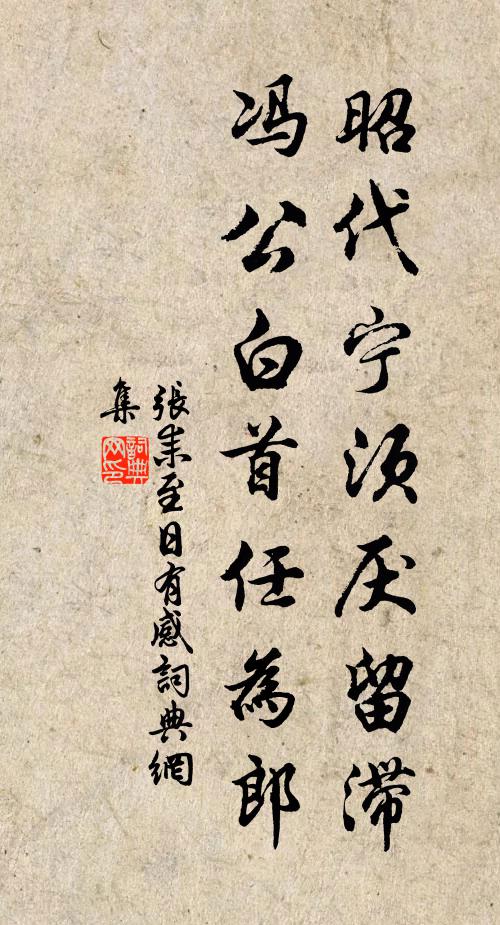 昭代宁须厌留滞
冯公白首任為郎
張耒至日有感詞典網
集
詞典
网印